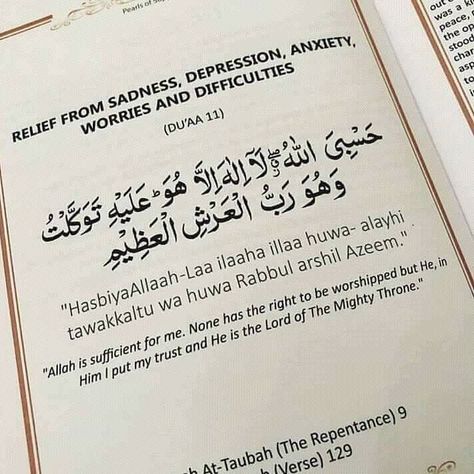 Pearls of
RELIEF FROM SADNESS, DEPRESSION, ANXIETY,
WORRIES AND DIFFICULTIES
(DU'AA 11)
حَسْبِىَ اللّٰهُ ۖ لَآ اِلٰهَ اِلَّا هُوَ ؕ عَلَيْهِ تَوَكَّلْتُ
وَهُوَ رَبُّ الْعَرْشِ الْعَظِيْمِ
"HasbiyaAllaah-Laa ilaaha illaa huwa- alayhi
tawakkaltu wa huwa Rabbul arshil Azeem."
"Allah is sufficient for me. None has the right to be worshipped but He, in
Him I put my trust and He is the Lord of The Mighty Throne."
At-Taubah (The Repentance) 9
(Verse) 129
was a
peace,
the op
stood